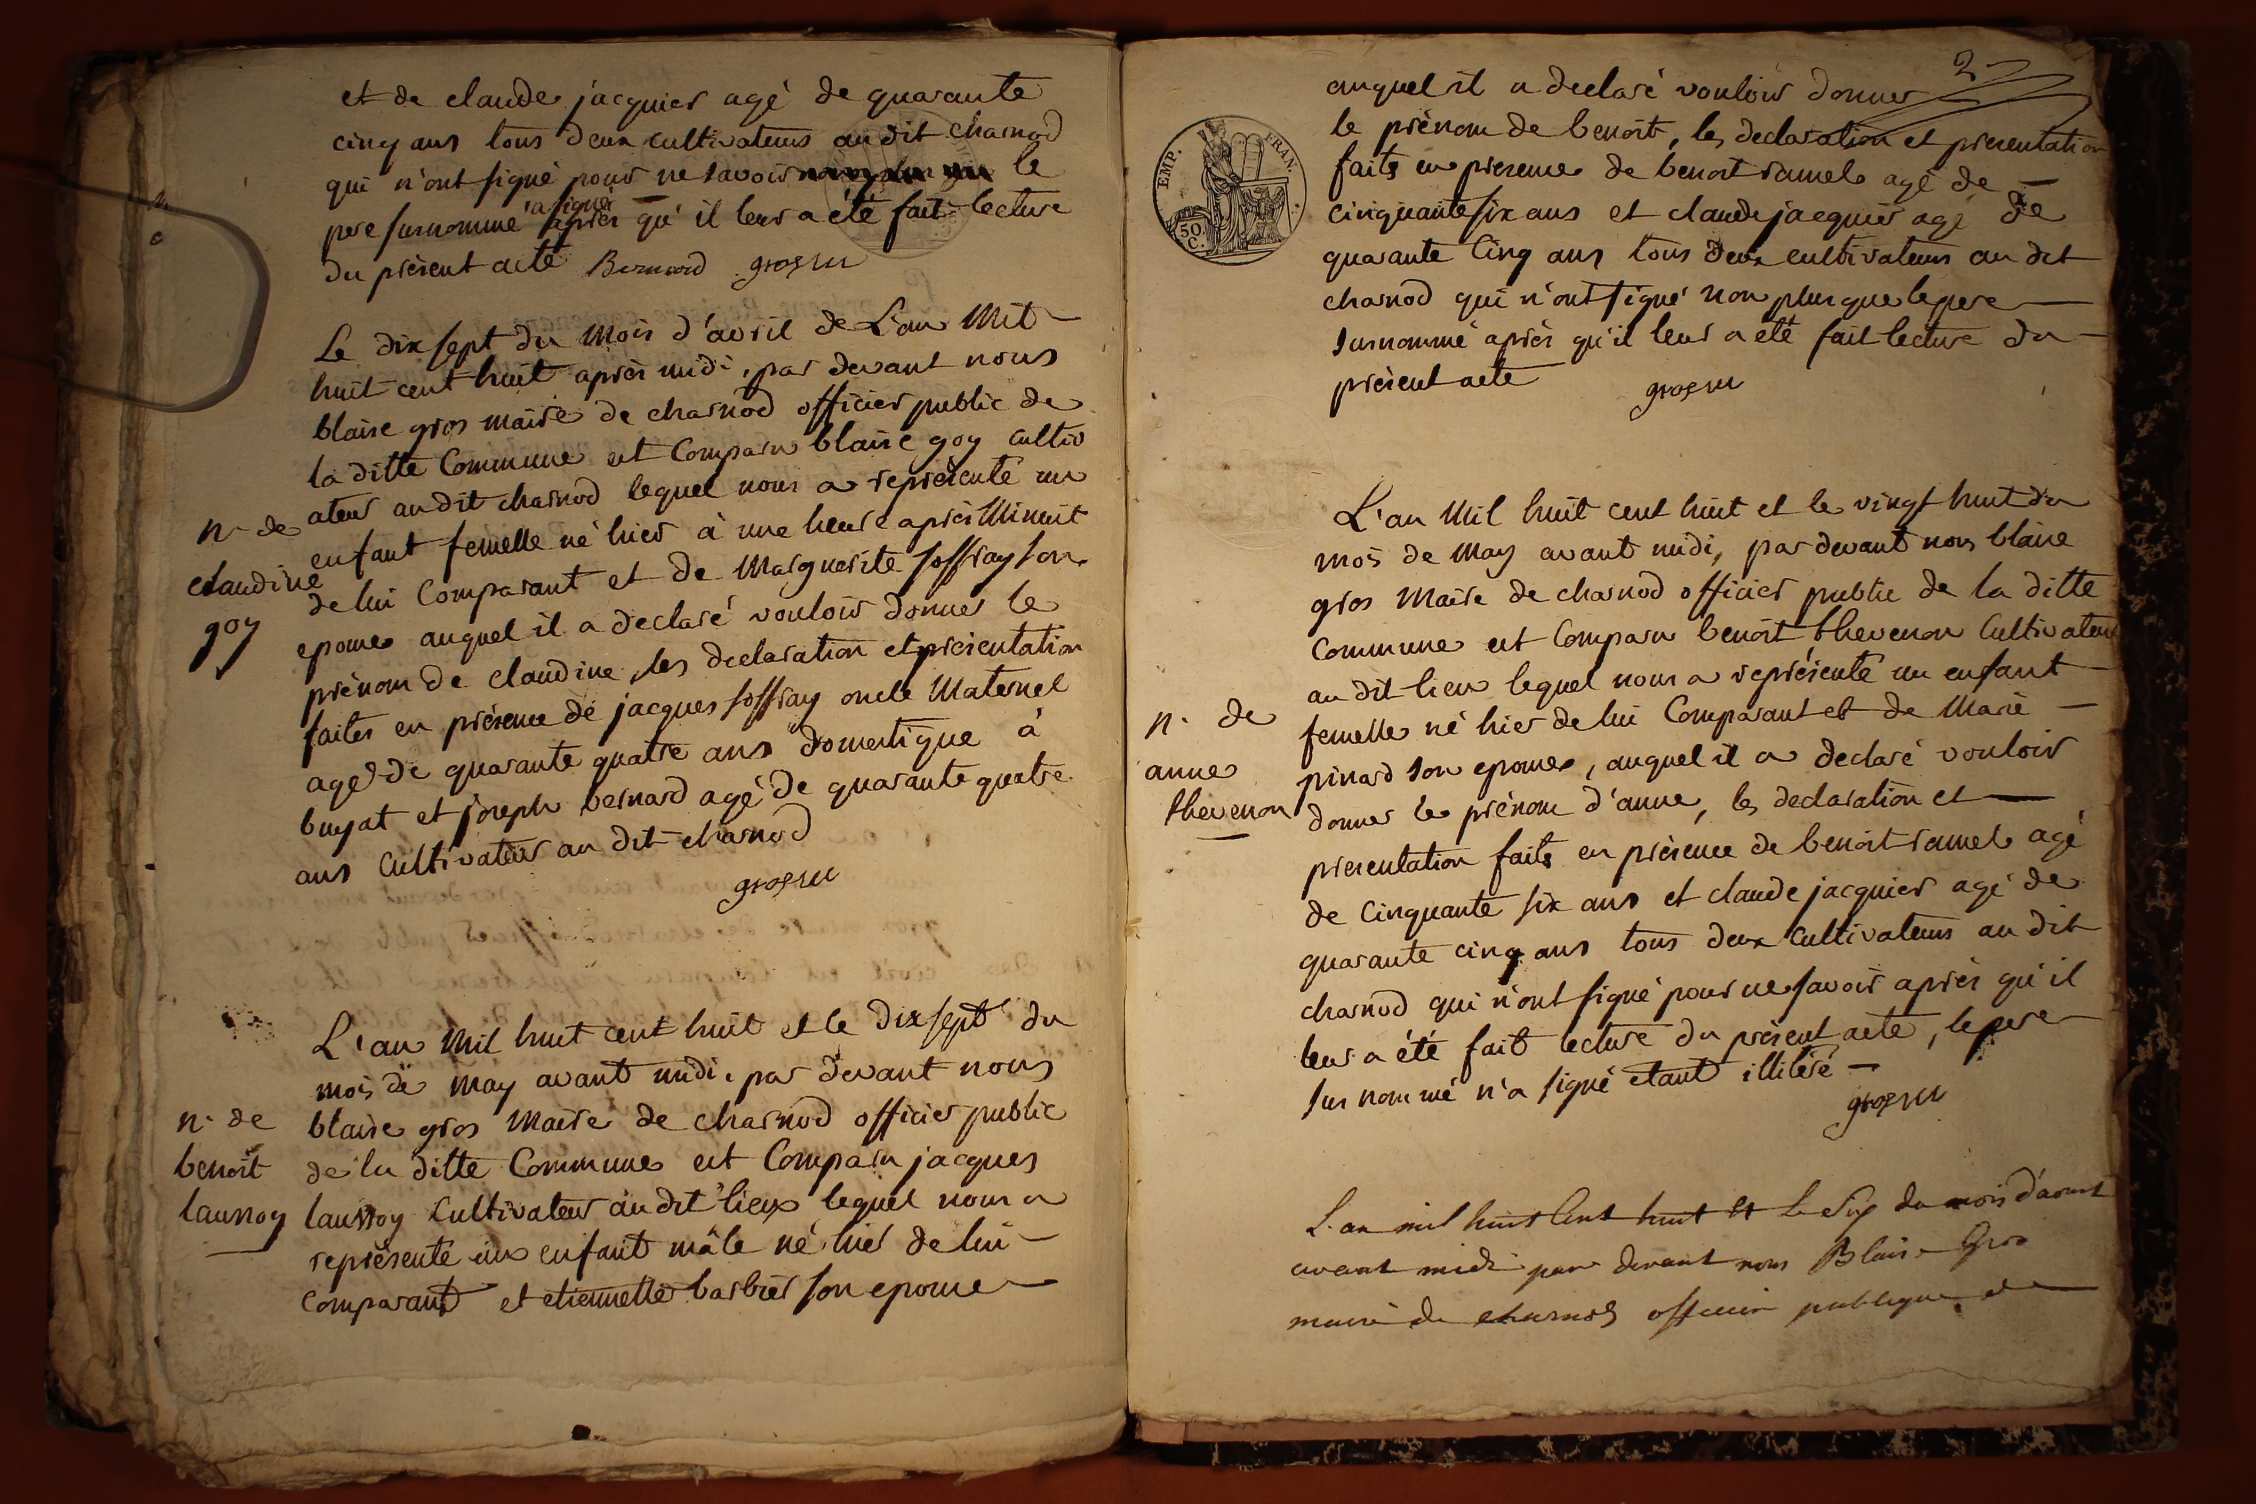 et de claude jacquier agé de quarante
cinq ans tous deux cultivateurs au dit charnod
qui n'ont signé pour ne savoir le
a signé
pere surnommé après qu'il leur a été fait lecture
du présent acte Bernard gros m
Le dix sept du mois d'avril de L'an Mil
huit cent huit après midi, par devant nous
blaise gros maire de charnod officier public de
la ditte Commune est Comparu blaise goy cultiv
ateur au dit charnod lequel nous a représenté un
n. de
enfant femelle né hier à une heure après Minuit
claudine
de lui Comparant et de Marguerite soffray son
goy
epouse auquel il a declaré vouloir donner le
prénom de claudine, les declaration et présentation
faites en présence de jacques soffray oncle Maternel
agé de quarante quatre ans domestique à
buyat et joseph bernard agé de quarante quatre
ans Cultivateur au dit charnod
gros m
L'an Mil huit cent huit et le dix sept du
mois de may avant midi, par devant nous
n. de
blaise gros Maire de charnod officier public
benoît
de la ditte Commune est Comparu jacques
launoy
launoy Cultivateur au dit lieu lequel nous a
représenté un enfant mâle né hier de lui
comparant et etiennette barbier son epouse
2
auquel il a declaré vouloir donner
le prénom de benoît, les declaration et presentation
EMP. FRAN.
50 C.
faits en presence de benoit ramel agé de
cinquante six ans et claude jacquier agé de
quarante Cinq ans tous deux cultivateurs au dit
charnod qui n'ont signé non plus que le pere
surnommé après qu'il leur a été fait lecture du
présent acte gros m
L'an Mil huit cent huit et le vingt huit du
mois de May avant midi, par devant nous blaise
gros Maire de charnod officier public de la ditte
Commune est Comparu benoît thevenon Cultivateur
au dit lieu lequel nous a représenté un enfant
n. de
femelle né hier de lui Comparant et de Marie
anne
pinard son epouse, auquel il a declaré vouloir
thevenon
donner le prénom d'anne, les declaration et
presentation faits en présence de benoit ramel agé
de Cinquante six ans et claude jacquier agé de
quarante cinq ans tous deux Cultivateurs au dit
charnod qui n'ont signé pour ne savoir après qu'il
leur a été fait lecture du présent acte, le pere
sur nommé n'a signé etant illiteré
gros m
L'an mil huit Cent huit et le Six du mois d'aoust
avant midi par devant nous Blaise Gros
maire de charnod officier publique de